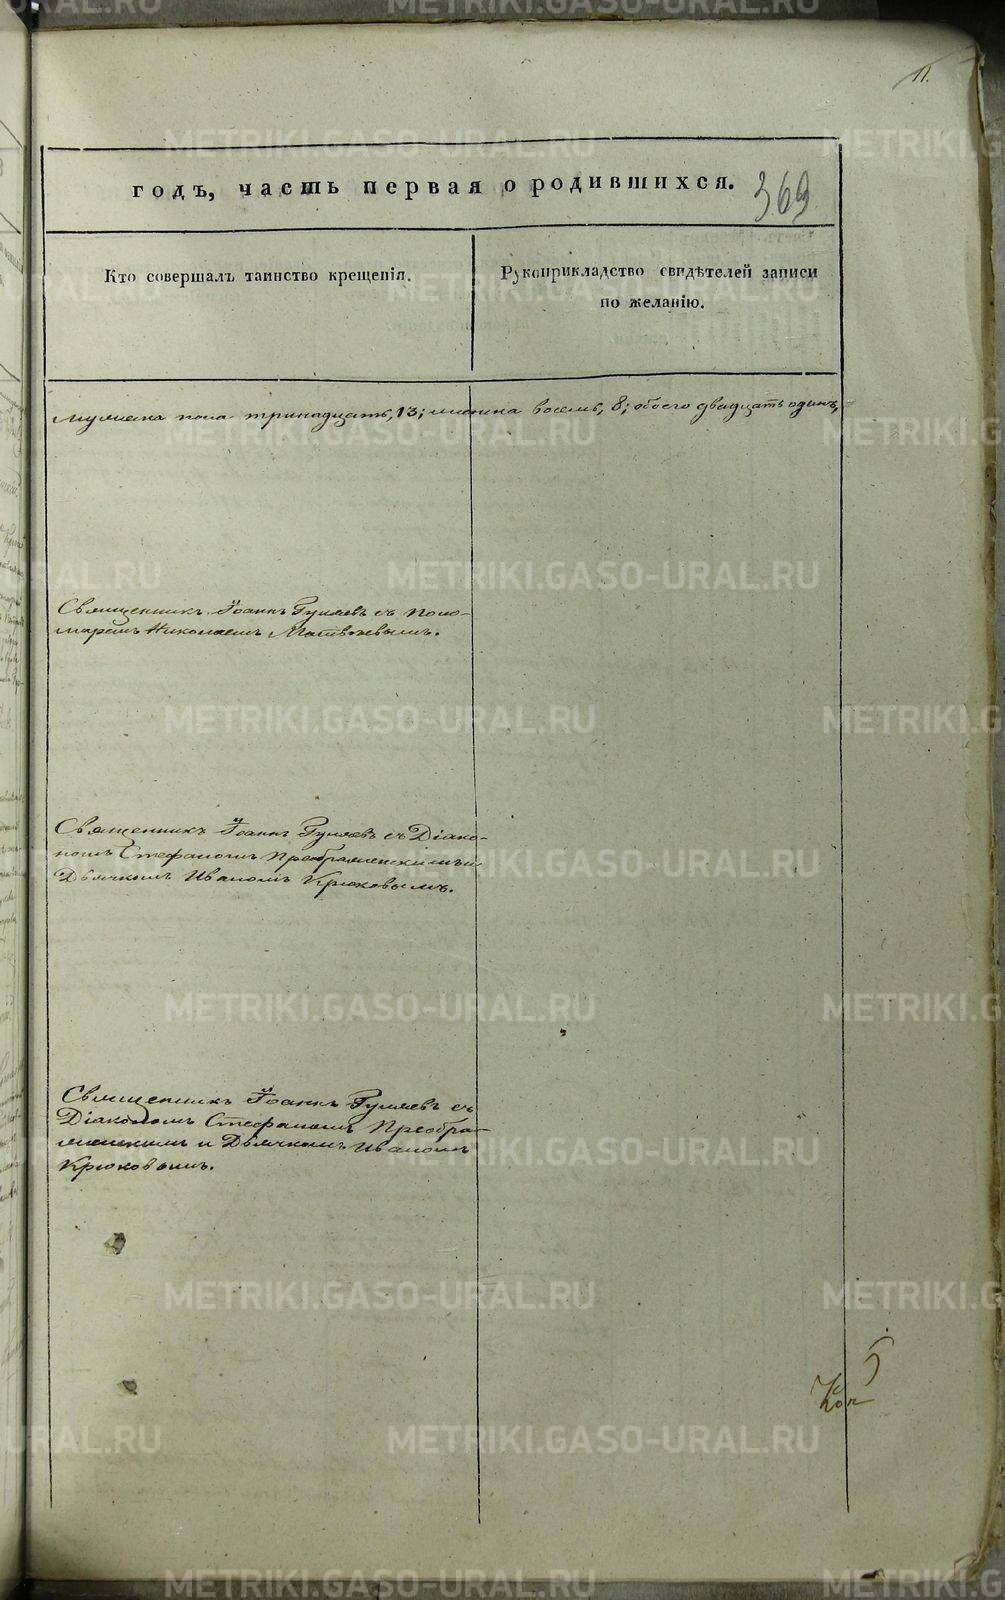 11.
годъ, часть первая о родившихся.
369
Кто совершалъ таинство крещенія.
Рукоприкладство свидѣтелей записи
по желанію.
мужеска пола тринадцать, 13; женска восемь, 8; обоего двадцать одинъ,
Священникъ Іоаннъ Гуляевъ съ Поно-
маремъ Николаемъ Матвѣевымъ.
Священникъ Іоаннъ Гуляевъ съ Діако-
номъ Стефаномъ Преображенскимъ и
Дьячкомъ Иваномъ Крюковымъ.
Священникъ Іоаннъ Гуляевъ съ
Діакономъ Стефаномъ Преобра-
женскимъ и Дьячкомъ Иваномъ
Крюковымъ.
METRIKI.GASO-URAL.RU